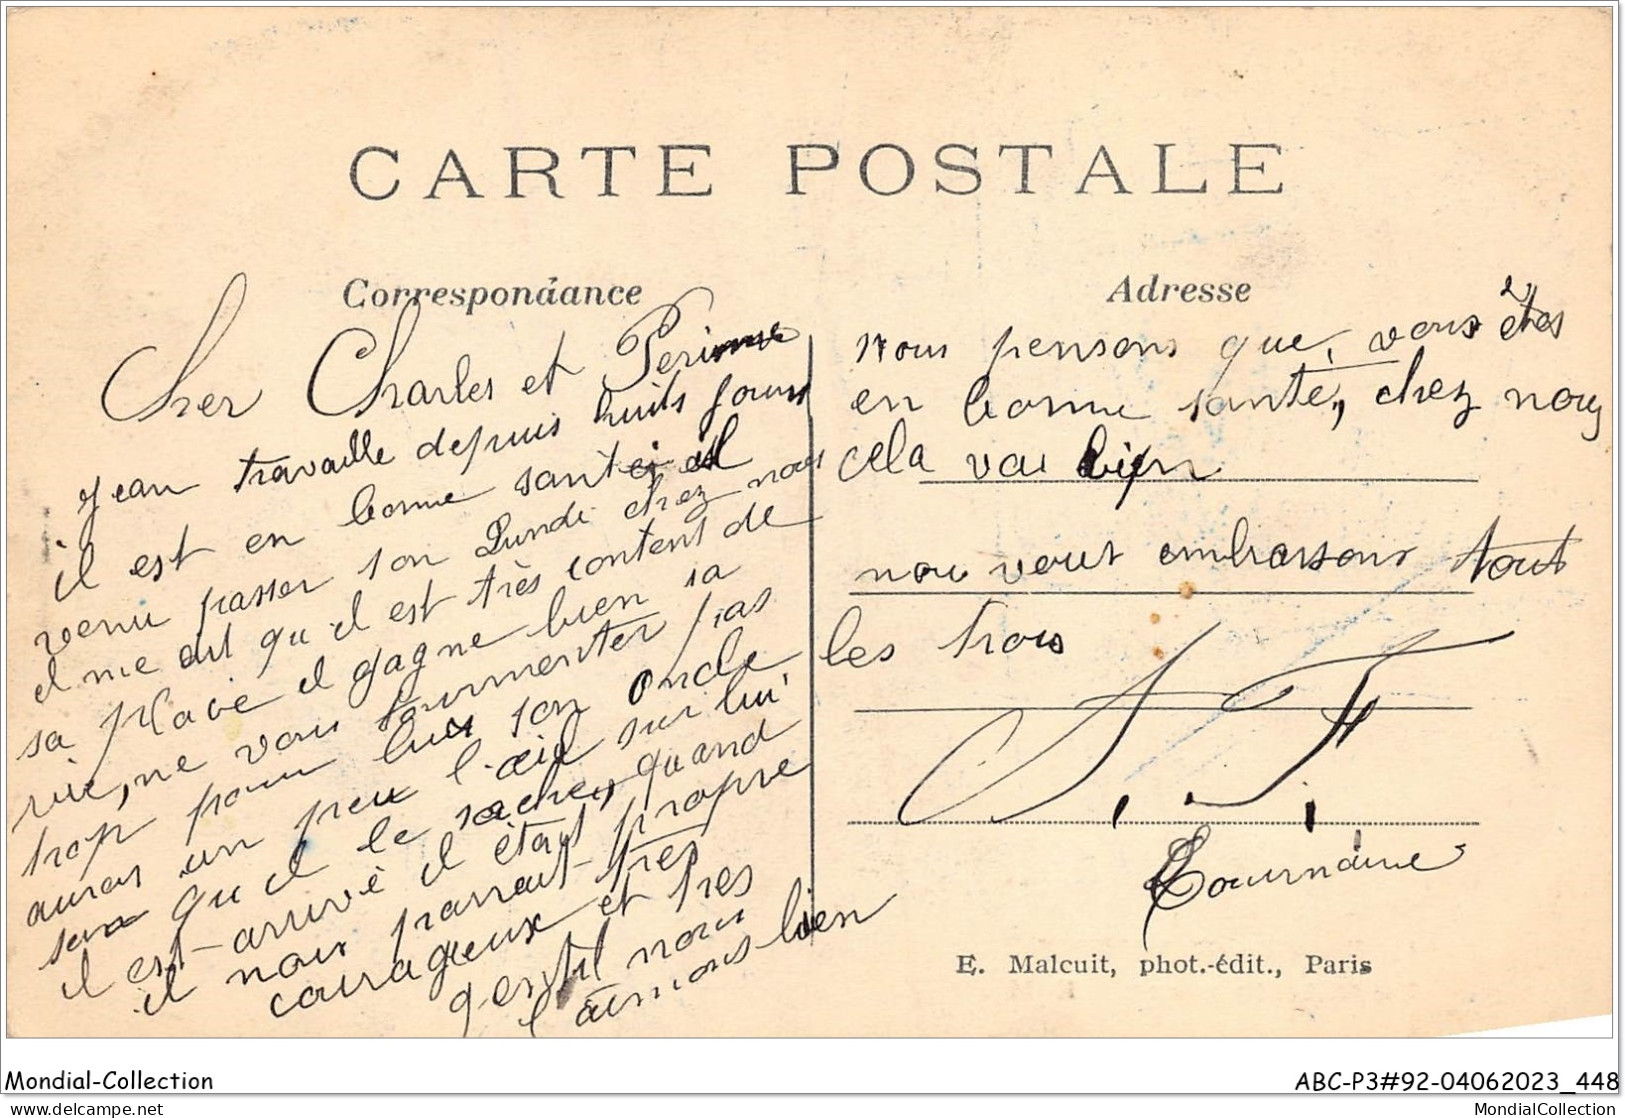 CARTE POSTALE
Correspondance
Cher Charles et Perinne
Jean travaille depuis huits jours
il est en bonne santé, il est
venu passer son Lundi chez nous
il me dit qu'il est très content de
sa place il gagne bien sa
vie, ne vous tourmenter pas
trop pour lui son oncle
auras un peu l'œil sur lui
sans qu'il le sache, quand
il est arrivé il était propre
il nous parrait très
courageux et très
gentil nous
l'aimons bien
Adresse
nous pensons que, vous êtes
en bonne santé, chez nous
cela vai bien
nou vout embrassons tout
les trois
Tournaire
E. Malcuit, phot.-édit., Paris
Mondial-Collection
ABC-P3#92-04062023_448
delcampe.net
MondialCollection